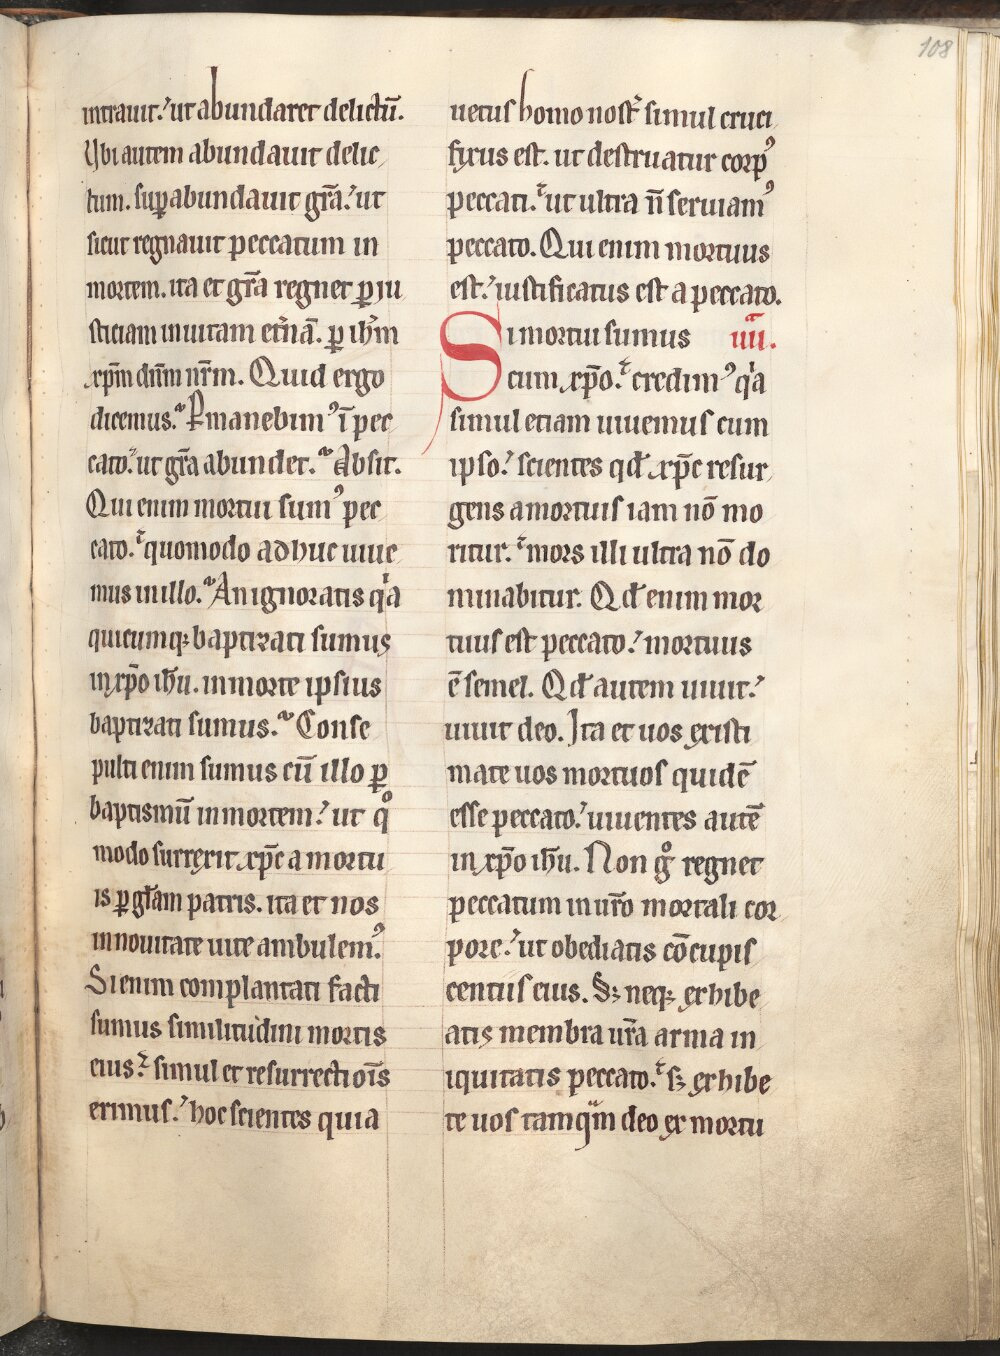 108
intrauit. ut abundaret delictū.
Vbi autem abundauit delic
tum. suꝑabundauit gr̄a. ut
sicut regnauit peccatum in
mortem. ita et gr̄a regnet ꝑ ju
sticiam in uitam et̄nā. ꝑ ih̄m
xp̄m dn̄m nr̄m. Quid ergo
dicemus. Ꝑmanebimꝰ ī pec
cato. ut gr̄a abundet. Absit.
Qui enim mortui sumꝰ pec
cato. quomodo adhuc uiue
mus in illo. An ignoratis qͥa
quicumqꝫ baptizati sumus
in xp̄o ih̄u. in morte ipsius
baptizati sumus. Conse
pulti enim sumus cū illo ꝑ
baptismū in mortem. ut qͦ
modo surrexit xp̄c a mortu
is ꝑ gl̄am patris. ita et nos
in nouitate uite ambulemꝰ.
Si enim complantati facti
sumus similitudini mortis
eius. simul et resurrectiōis
erimus. hoc scientes quia
uetus homo nost̄ simul cruci
fixus est. ut destruatur corpꝰ
peccati. ut ultra n̄ seruiamꝰ
peccato. Qui enim mortuus
est. iustificatus est a peccato.
Si mortui sumus iiii.
cum xp̄o. credimꝰ qͥa
simul etiam uiuemus cum
ipso. scientes qđ xp̄c resur
gens a mortuis iam nō mo
ritur. mors illi ultra nō do
minabitur. Qđ enim mor
tuus est peccato. mortuus
ē semel. Qđ autem uiuit.
uiuit deo. Ita et uos existi
mate uos mortuos quidē
esse peccato. uiuentes autē
in xp̄o ih̄u. Non gͦ regnet
peccatum in ur̄o mortali cor
pore. ut obediatis cōcupis
centiis eius. Sꝫ neqꝫ exhibe
atis membra ur̄a arma in
iquitatis peccato. sꝫ exhibe
te uos tamqͣm deo ex mortu